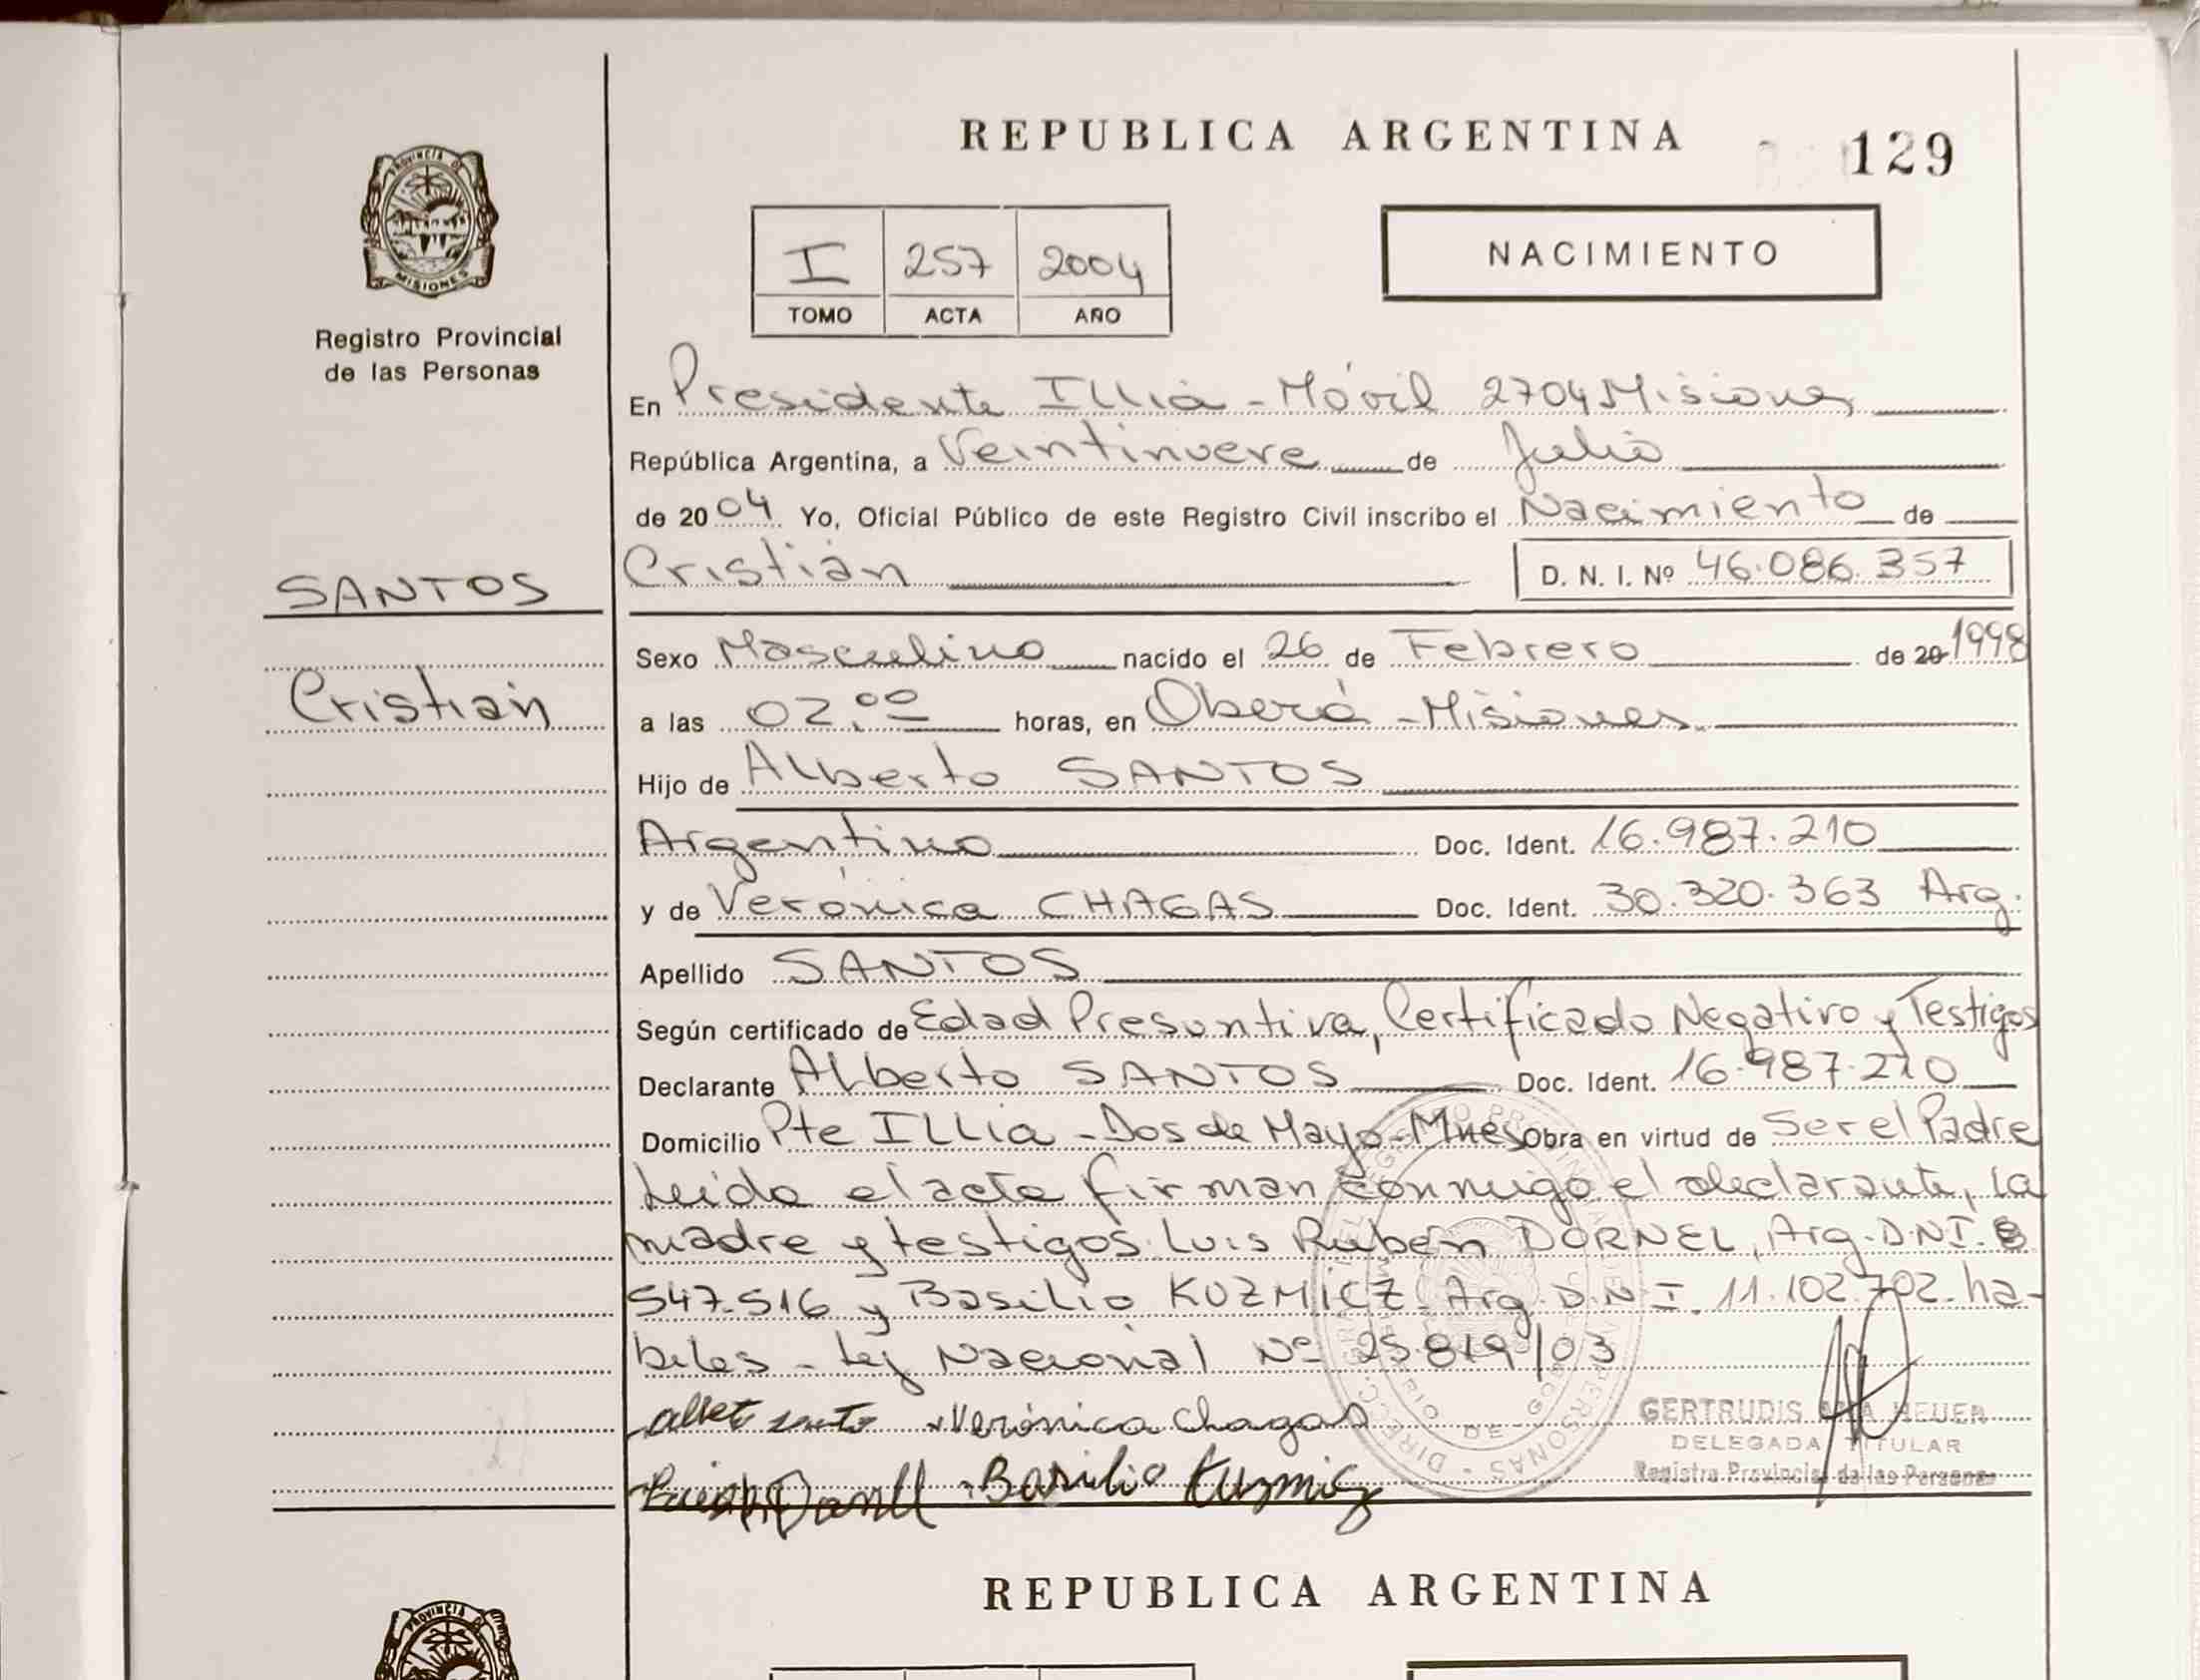 PROVINCIA DE
MISIONES
Registro Provincial
de las Personas
REPUBLICA ARGENTINA
129
I 257 2004
TOMO ACTA AÑO
NACIMIENTO
En Presidente ILLia - Móvil 2704 Misiones
República Argentina, a Veintinueve de Julio
de 2004 Yo, Oficial Público de este Registro Civil inscribo el Nacimiento de
SANTOS
Cristian
Cristian D. N. I. Nº 46.086.357
Sexo Masculino nacido el 26 de Febrero de 20 1998
a las 02.00 horas, en Oberá - Misiones.
Hijo de Alberto SANTOS
Argentino Doc. Ident. 16.987.210
y de Verónica CHAGAS Doc. Ident. 30.320.363 Arg.
Apellido SANTOS
Según certificado de Edad Presuntiva, Certificado Negativo y Testigos
Declarante Alberto SANTOS Doc. Ident. 16.987.210
Domicilio Pte ILLia - Dos de Mayo - Mnes Obra en virtud de Ser el Padre
Leída el acta firman conmigo el declarante, la
madre y testigos Luis Ruben DORNEL, Arg. D.N.I. 8
547.516 y Basilio KUZMICZ - Arg. D.N.I. 11.102.702 - ha-
biles - Ley Nacional Nº 25.819/03
Verónica Chagas
Basilio Kuzmicz
GERTRUDIS HEUER
DELEGADA TITULAR
Registro Provincial de las Personas
REPUBLICA ARGENTINA
PROVINCIA DE